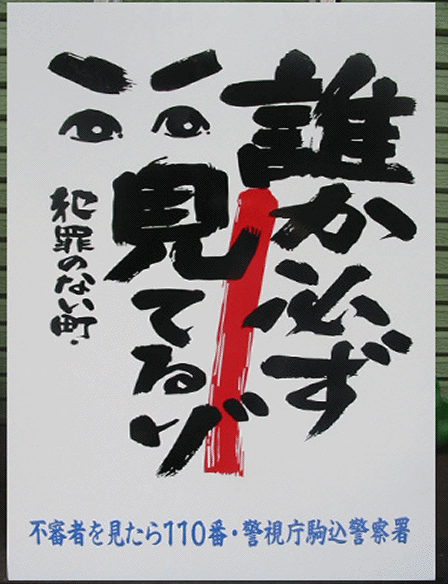 誰か必ず
見てるゾ
犯罪のない町・
不審者を見たら110番・警視庁駒込警察署